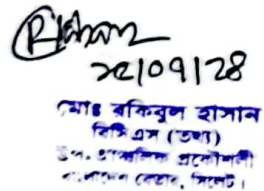 ২৫/০৭/২৪
মোঃ রকিবুল হাসান
বিসিএস (তথ্য)
উপ-আঞ্চলিক প্রকৌশলী
বাংলাদেশ বেতার, সিলেট।